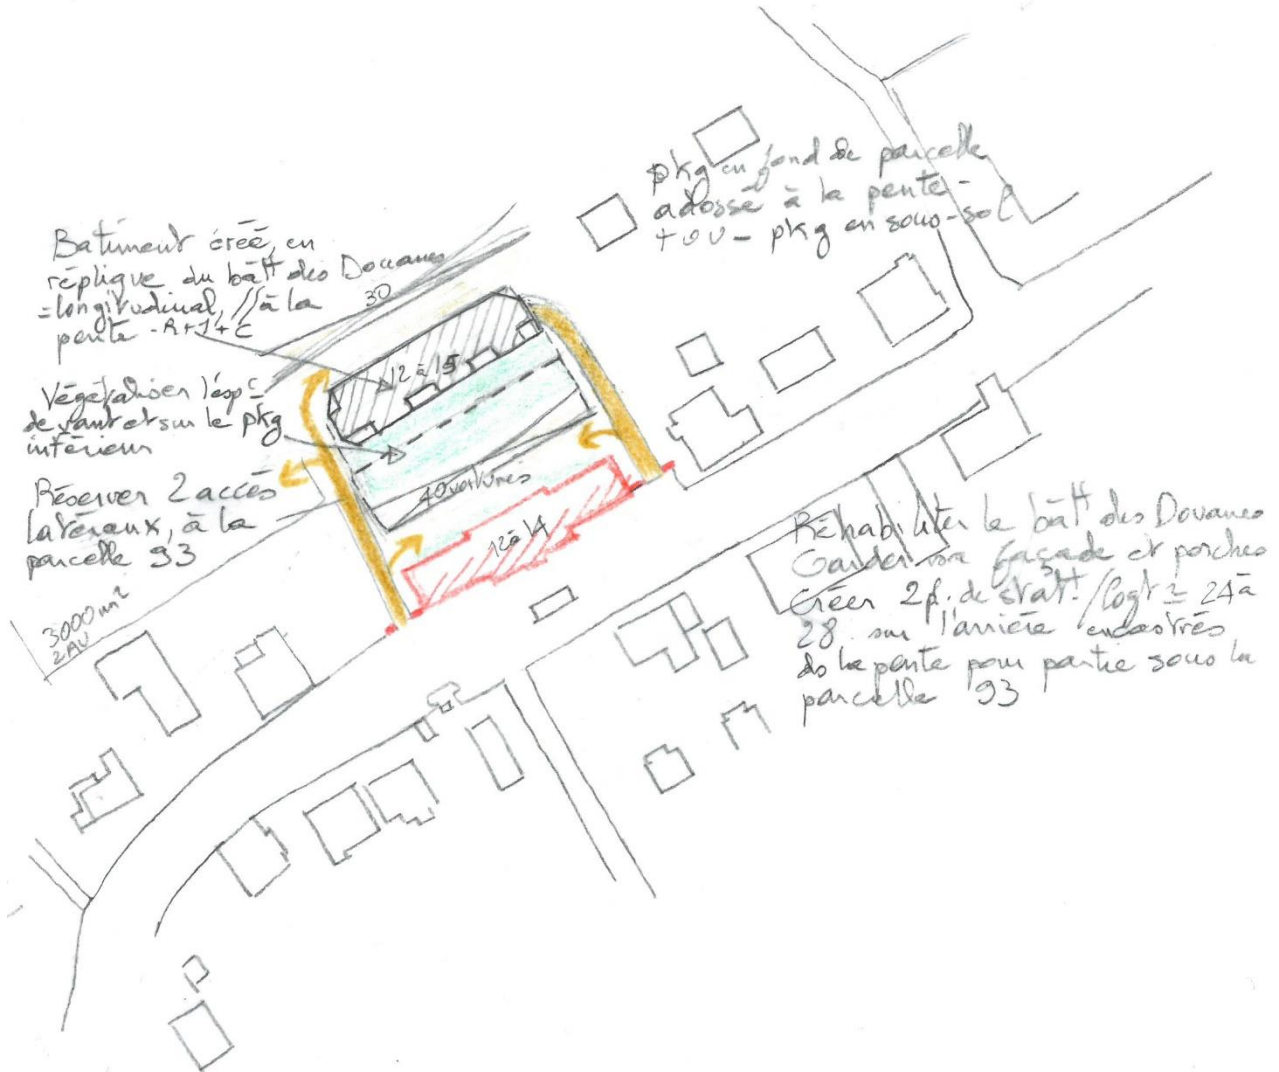 pkg en fond de parcelle
adossé à la pente -
+ ou - pkg en sous-sol
Batiment créé, en
réplique du bâtt des Douanes
= longitudinal, // à la
pente - R+1+C
30
12 à 15
Végétaliser l'espc
devant et sur le pkg
intérieur
Réserver 2 accès
latéraux, à la
parcelle 93
40 voitures
12 à 14
3000 m²
2AU
Réhabiliter le bâtt des Douanes
Garder sa façade et porches
Créer 2 p. de statt / logt = 24 à
28 sur l'arrière encastrés
ds la pente pour partie sous la
parcelle 93